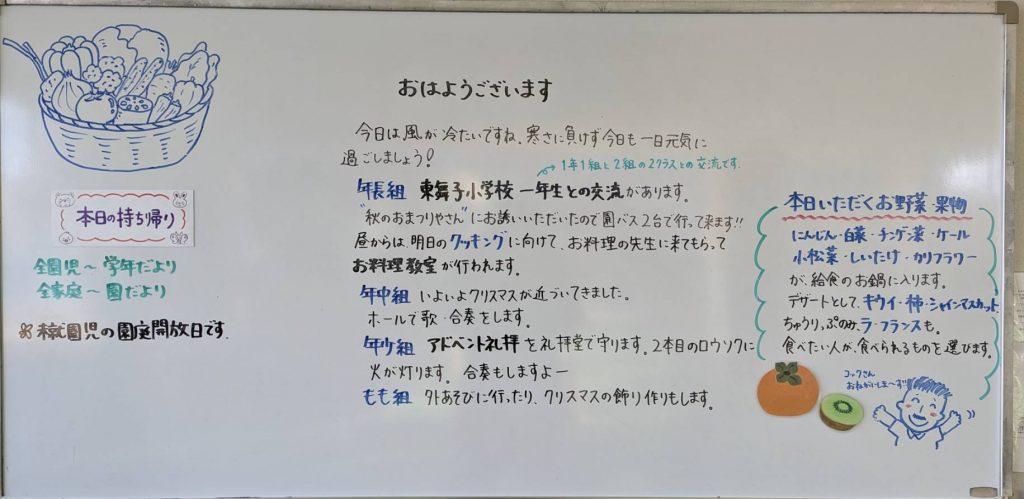 おはようございます
今日は風が冷たいですね、寒さに負けず今日も一日元気に
過ごしましょう!
1年1組と2組の2クラスとの交流です.
年長組 東舞子小学校 一年生との交流があります。
"秋のおまつりやさん"にお誘いいただいたので園バス2台で行って来ます!!
昼からは、明日のクッキングに向けて、お料理の先生に来てもらって
お料理教室が行われます。
年中組 いよいよクリスマスが近づいてきました。
ホールで歌・合奏をします。
年少組 アドベント礼拝を礼拝堂で守ります。2本目のロウソクに
火が灯ります。合奏もしますよー
もも組 外あそびに行ったり、クリスマスの飾り作りもします。
本日の持ち帰り
全園児〜学年だより
全家庭〜園だより
未就園児の園庭開放日です.
本日いただくお野菜・果物
にんじん・白菜・チンゲン菜・ケール
小松菜・しいたけ・カリフラワー
が、給食のお鍋に入ります。
デザートとして、キウイ・柿・シャインマスカット、
ちゅうりっぷのみ、ラ・フランスも。
食べたい人が、食べられるものを選びます。
コックさん
おねがいしまーす!!